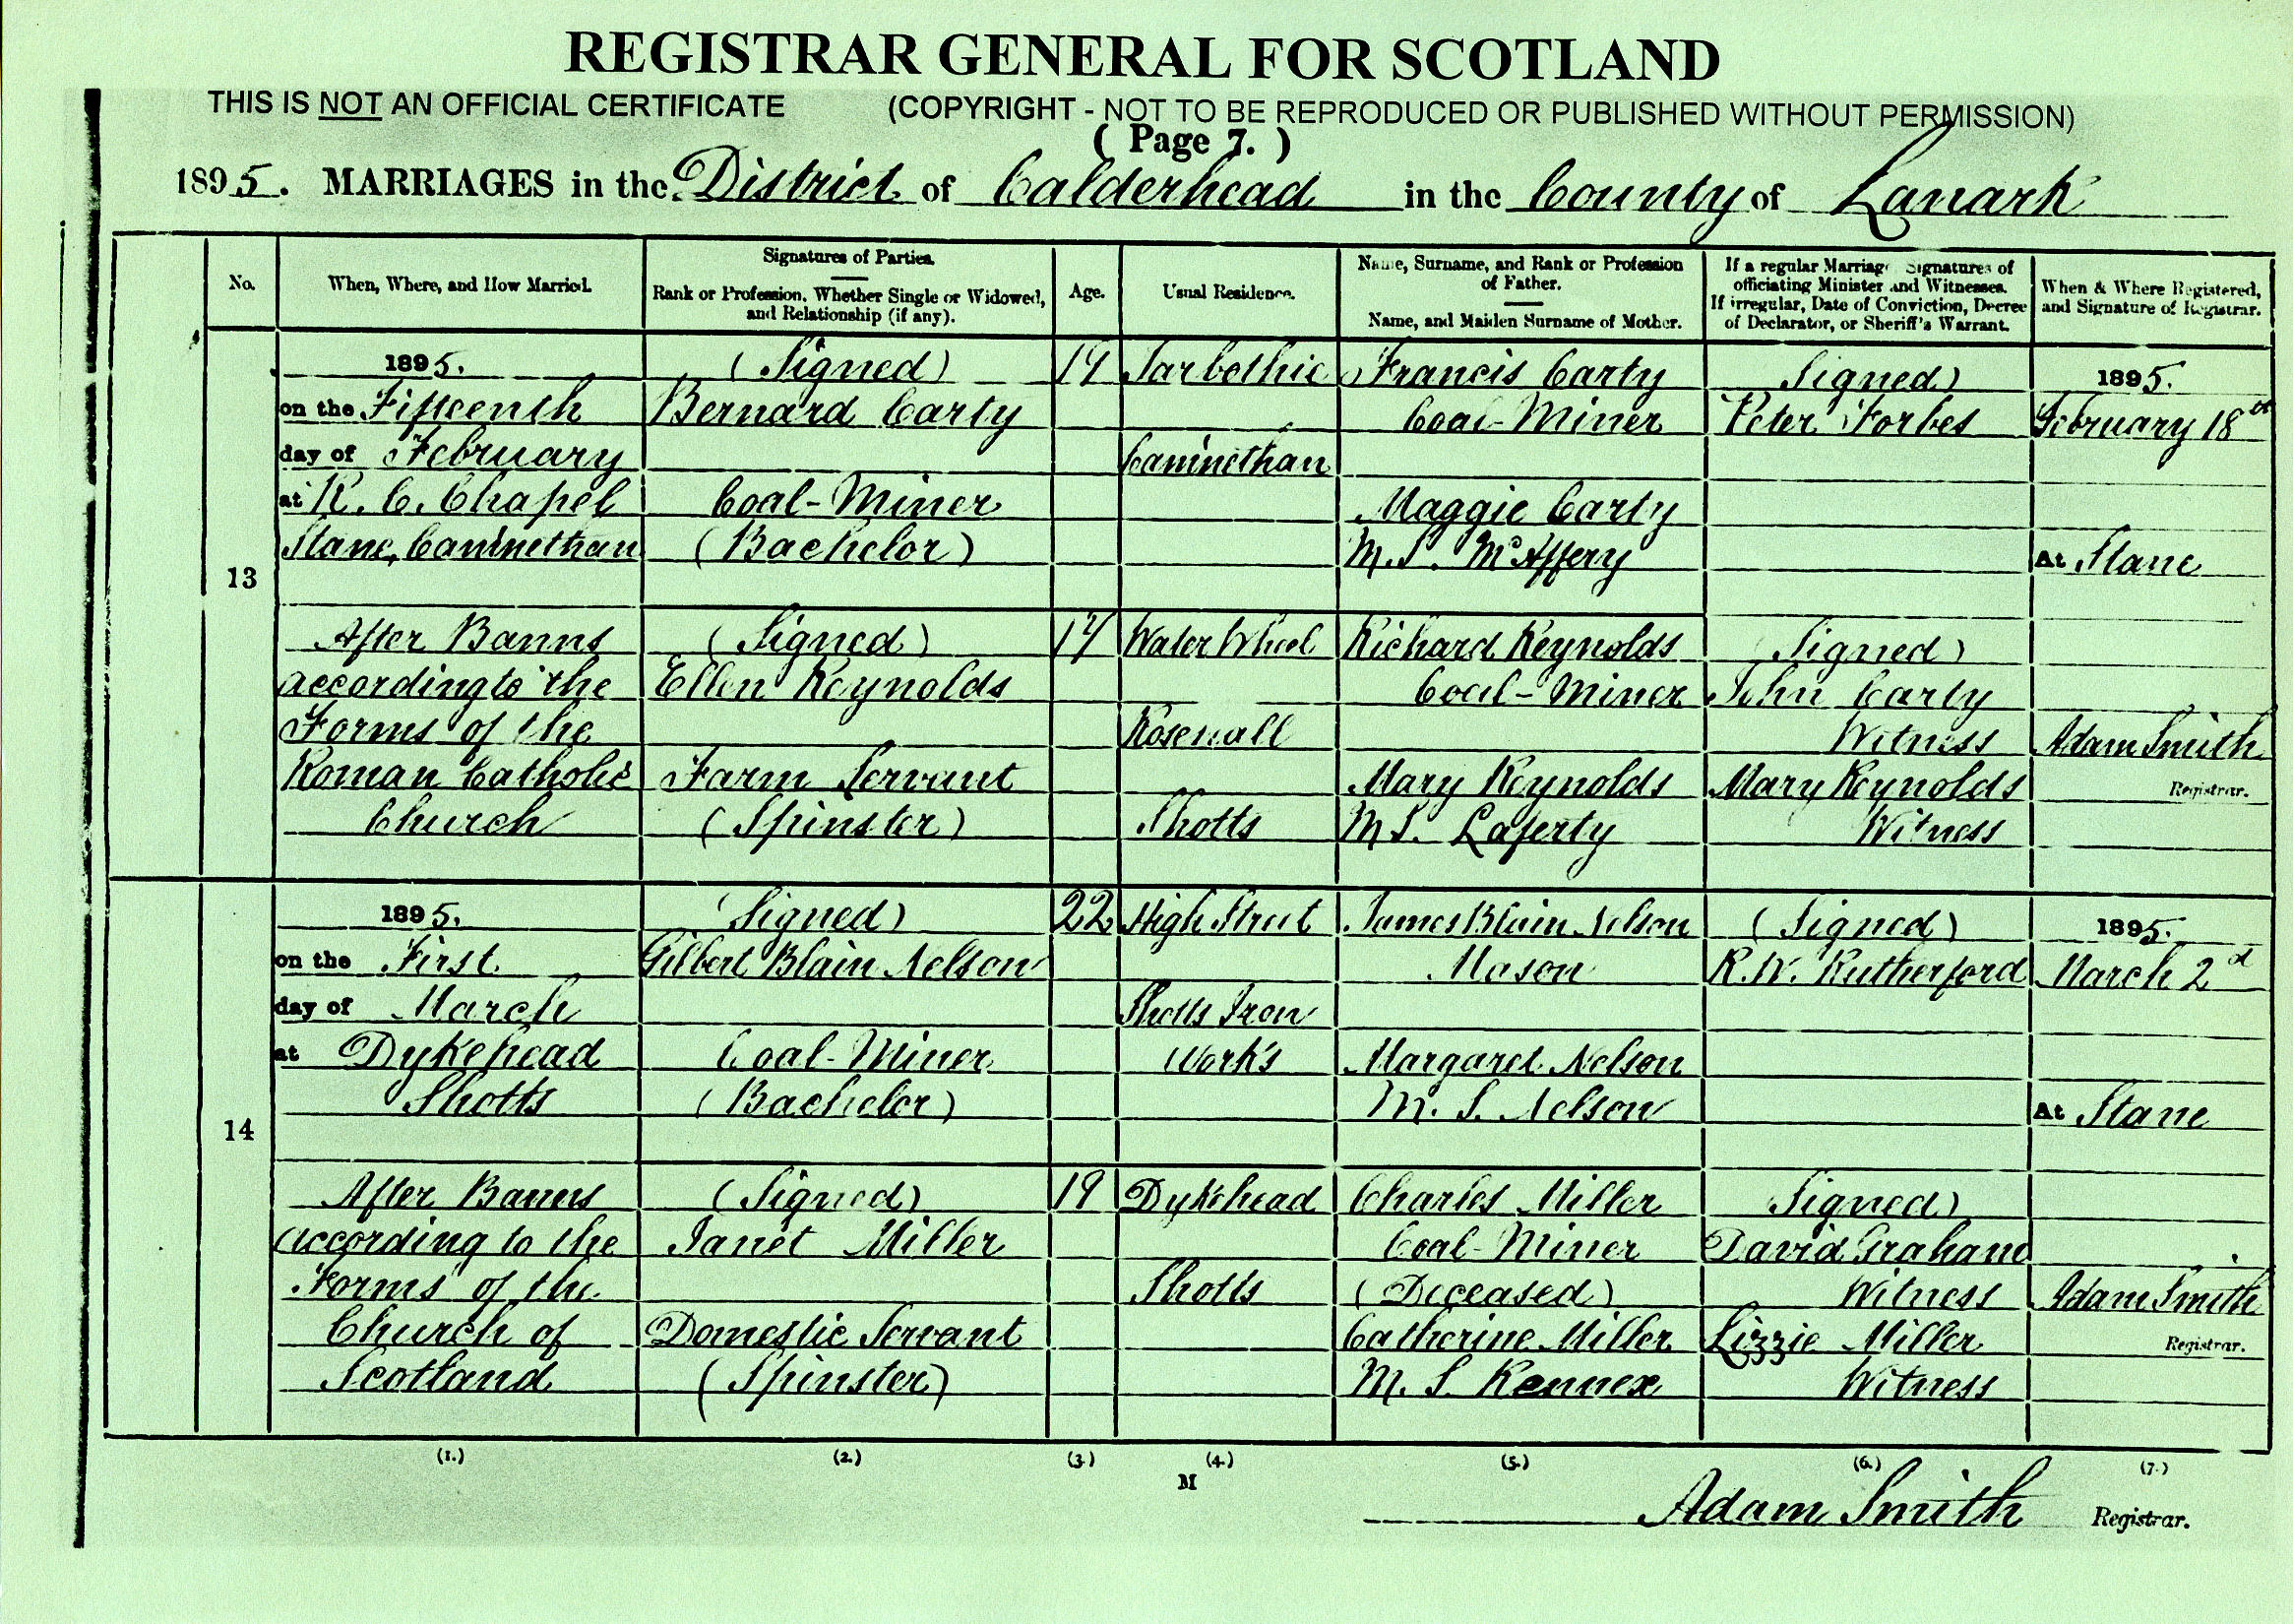 REGISTRAR GENERAL FOR SCOTLAND
THIS IS NOT AN OFFICIAL CERTIFICATE (COPYRIGHT - NOT TO BE REPRODUCED OR PUBLISHED WITHOUT PERMISSION)
( Page 7. )
1895. MARRIAGES in the District of Calderhead in the County of Lanark
No.
When, Where, and How Married.
Signatures of Parties.
Rank or Profession, Whether Single or Widowed,
and Relationship (if any).
Age.
Usual Residence.
Name, Surname, and Rank or Profession
of Father.
Name, and Maiden Surname of Mother.
If a regular Marriage, Signatures of
officiating Minister and Witnesses.
If irregular, Date of Conviction, Decree
of Declarator, or Sheriff's Warrant.
When & Where Registered,
and Signature of Registrar.
13
1895.
on the Fifteenth
day of February
at R. C. Chapel
Stane, Cambnethan
After Banns
according to the
Forms of the
Roman Catholic
Church
(Signed)
Bernard Carty
Coal-Miner
(Bachelor)
(Signed)
Ellen Reynolds
Farm Servant
(Spinster)
19
17
Tarbothie
Water Wheel
Shotts
Francis Carty
Coal-Miner
Maggie Carty
M.S. McAffery
Richard Reynolds
Coal-Miner
Mary Reynolds
M.S. Laferty
Signed)
Peter Forbes
(Signed)
John Carty
Witness
Mary Reynolds
Witness
1895.
February 18th
At Stane
Adam Smith
Registrar.
14
1895.
on the First
day of March
at Dykehead
Shotts
After Banns
according to the
Forms of the
Church of
Scotland
(Signed)
Gilbert Blain Nelson
Coal-Miner
(Bachelor)
(Signed)
Janet Miller
Domestic Servant
(Spinster)
22
19
High Street
Shotts Iron
Works
Dykehead
Shotts
James Blain Nelson
Mason
Margaret Nelson
M. S. Nelson
Charles Miller
Coal-Miner
(Deceased)
Catherine Miller
M. S.
(Signed)
R. W. Rutherford
Signed)
David Graham
Witness
Lizzie Miller
Witness
1895.
March 2d
At Stane
Adam Smith
Registrar.
(1.) (2.) (3.) (4.) (5.) (6.) (7.)
M
Adam Smith Registrar.